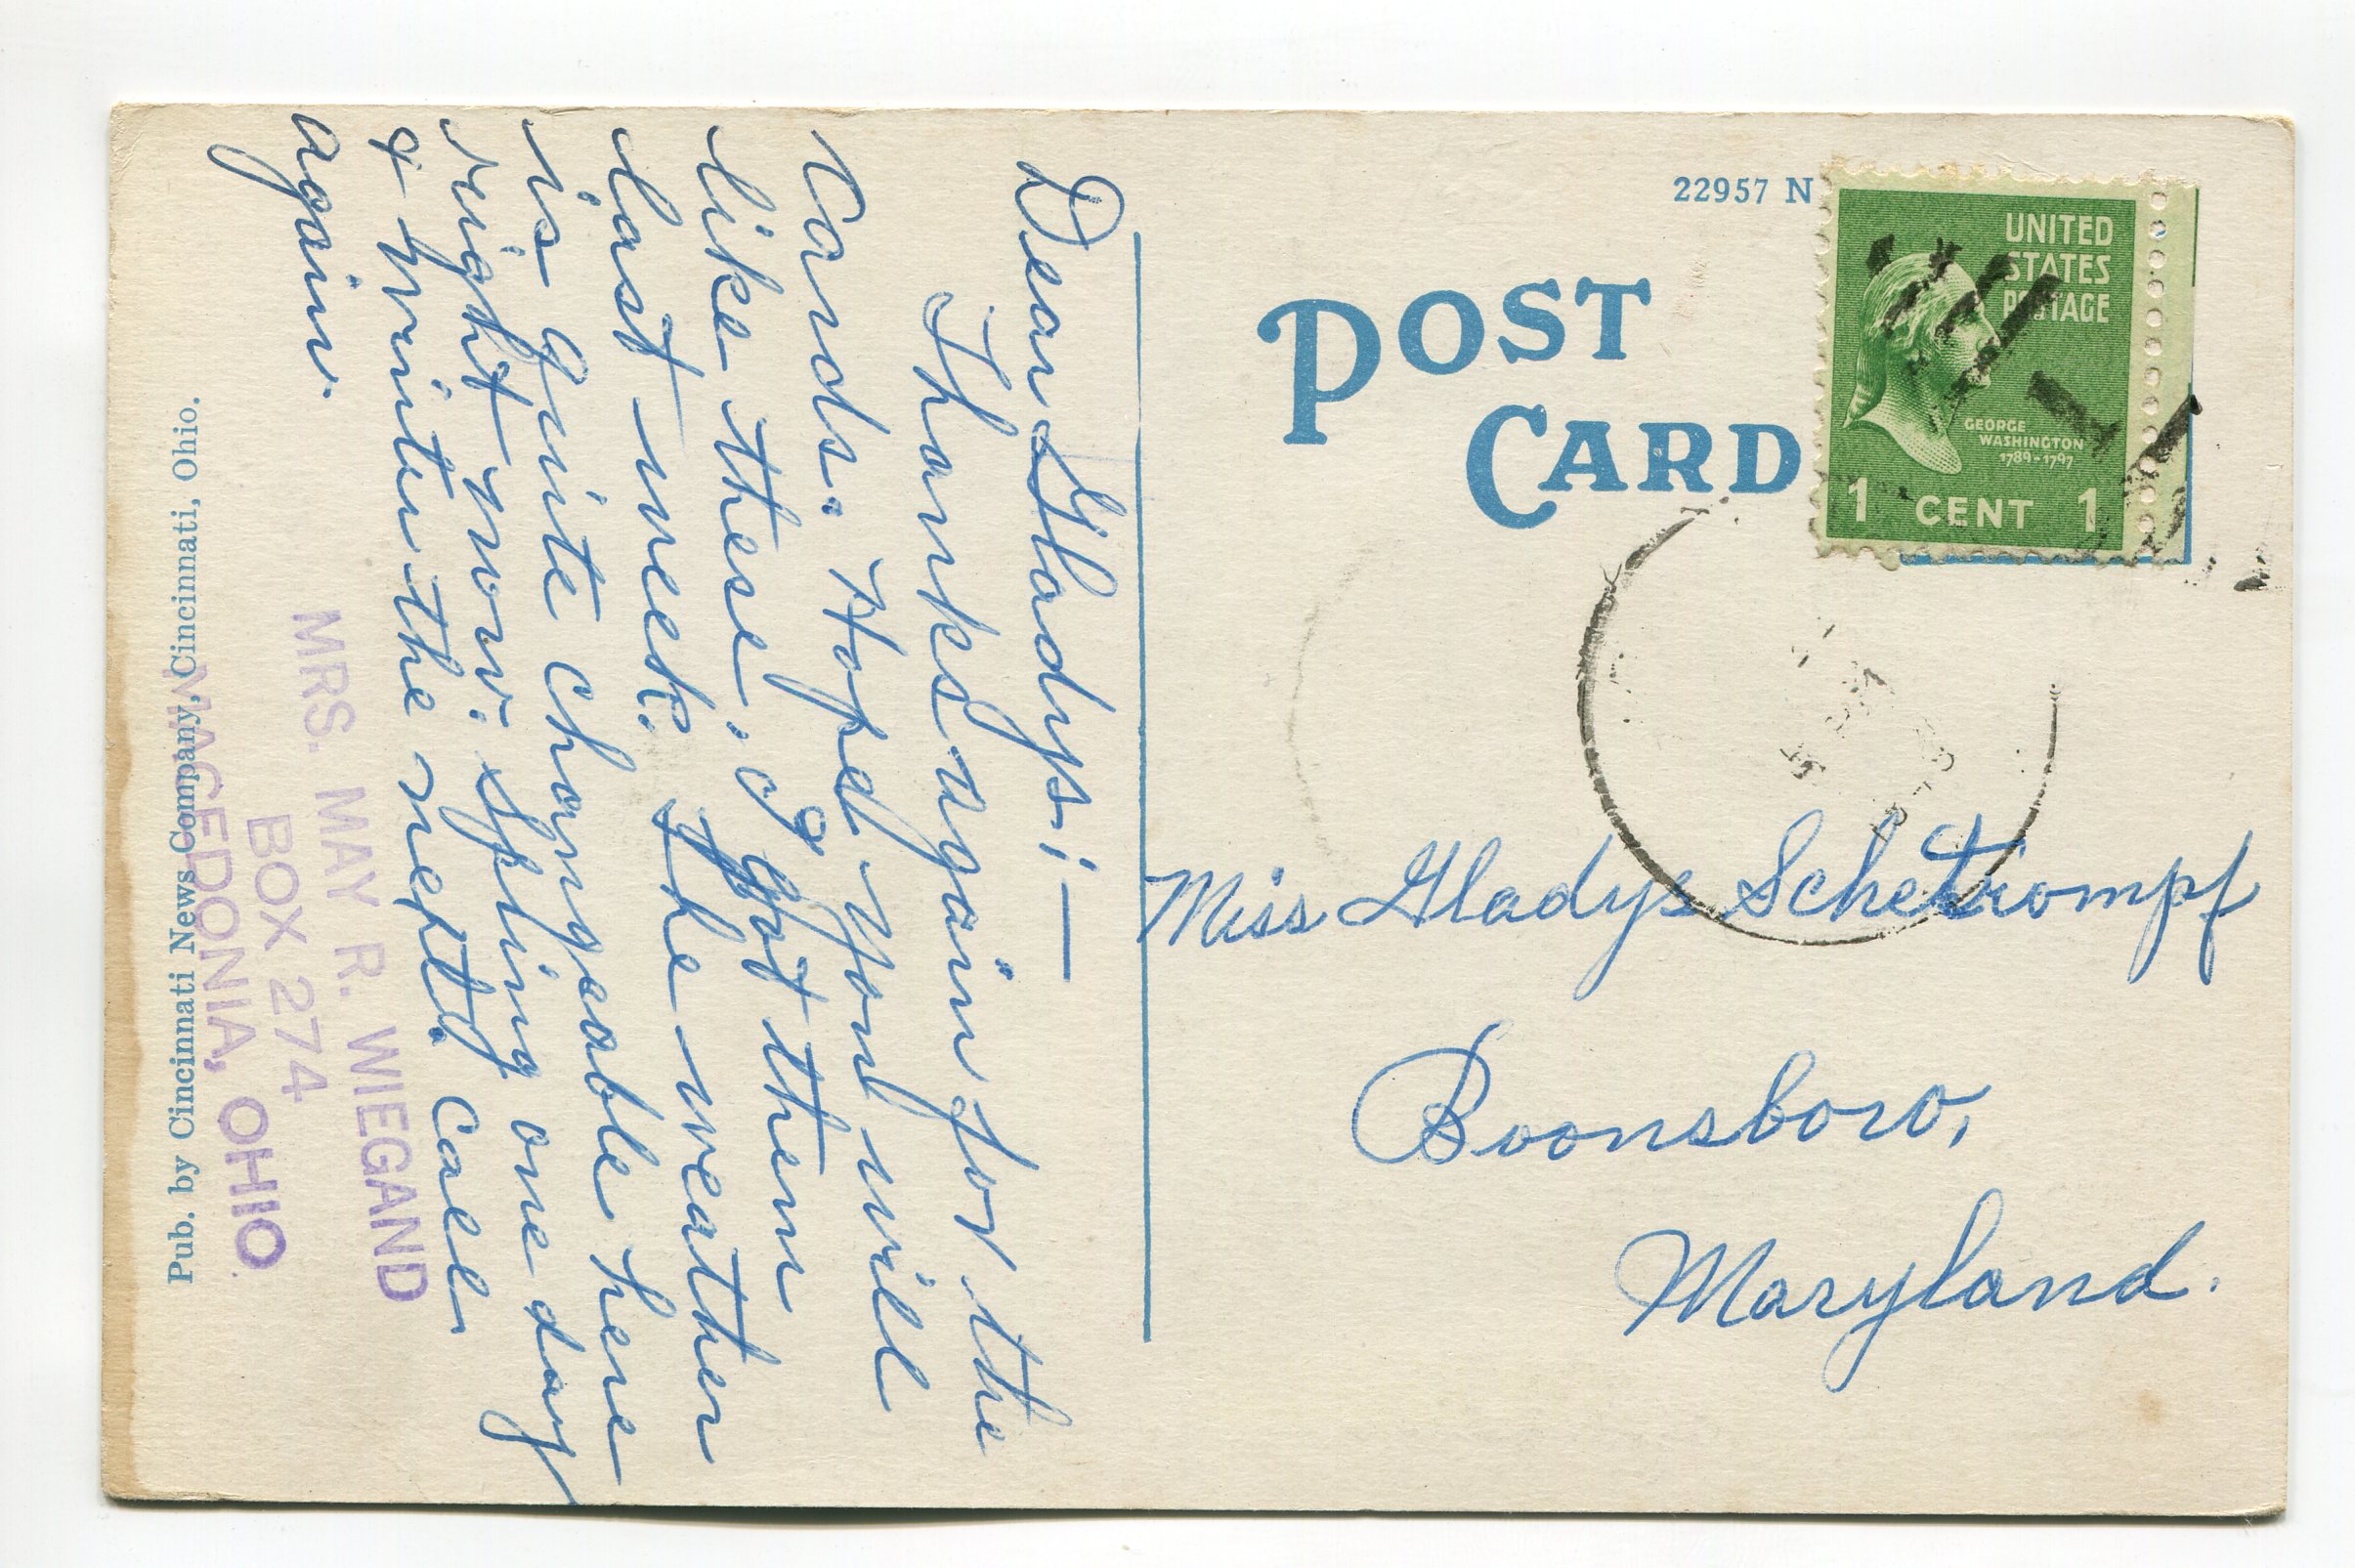 Dear Gladys:—
Thanks again for the
cards. Hoped you will
like these. I got them
last week. The weather
is quite changeable here
right now. Spring one day
& winter the next. Call
again.
MRS. MAY R. WIEGAND
BOX 274
MACEDONIA, OHIO
Pub. by Cincinnati News Company, Cincinnati, Ohio.
22957 N
POST
CARD
UNITED
STATES
POSTAGE
GEORGE
WASHINGTON
1789-1797
1 CENT 1
Miss Gladys Schetrompf
Boonsboro,
Maryland.